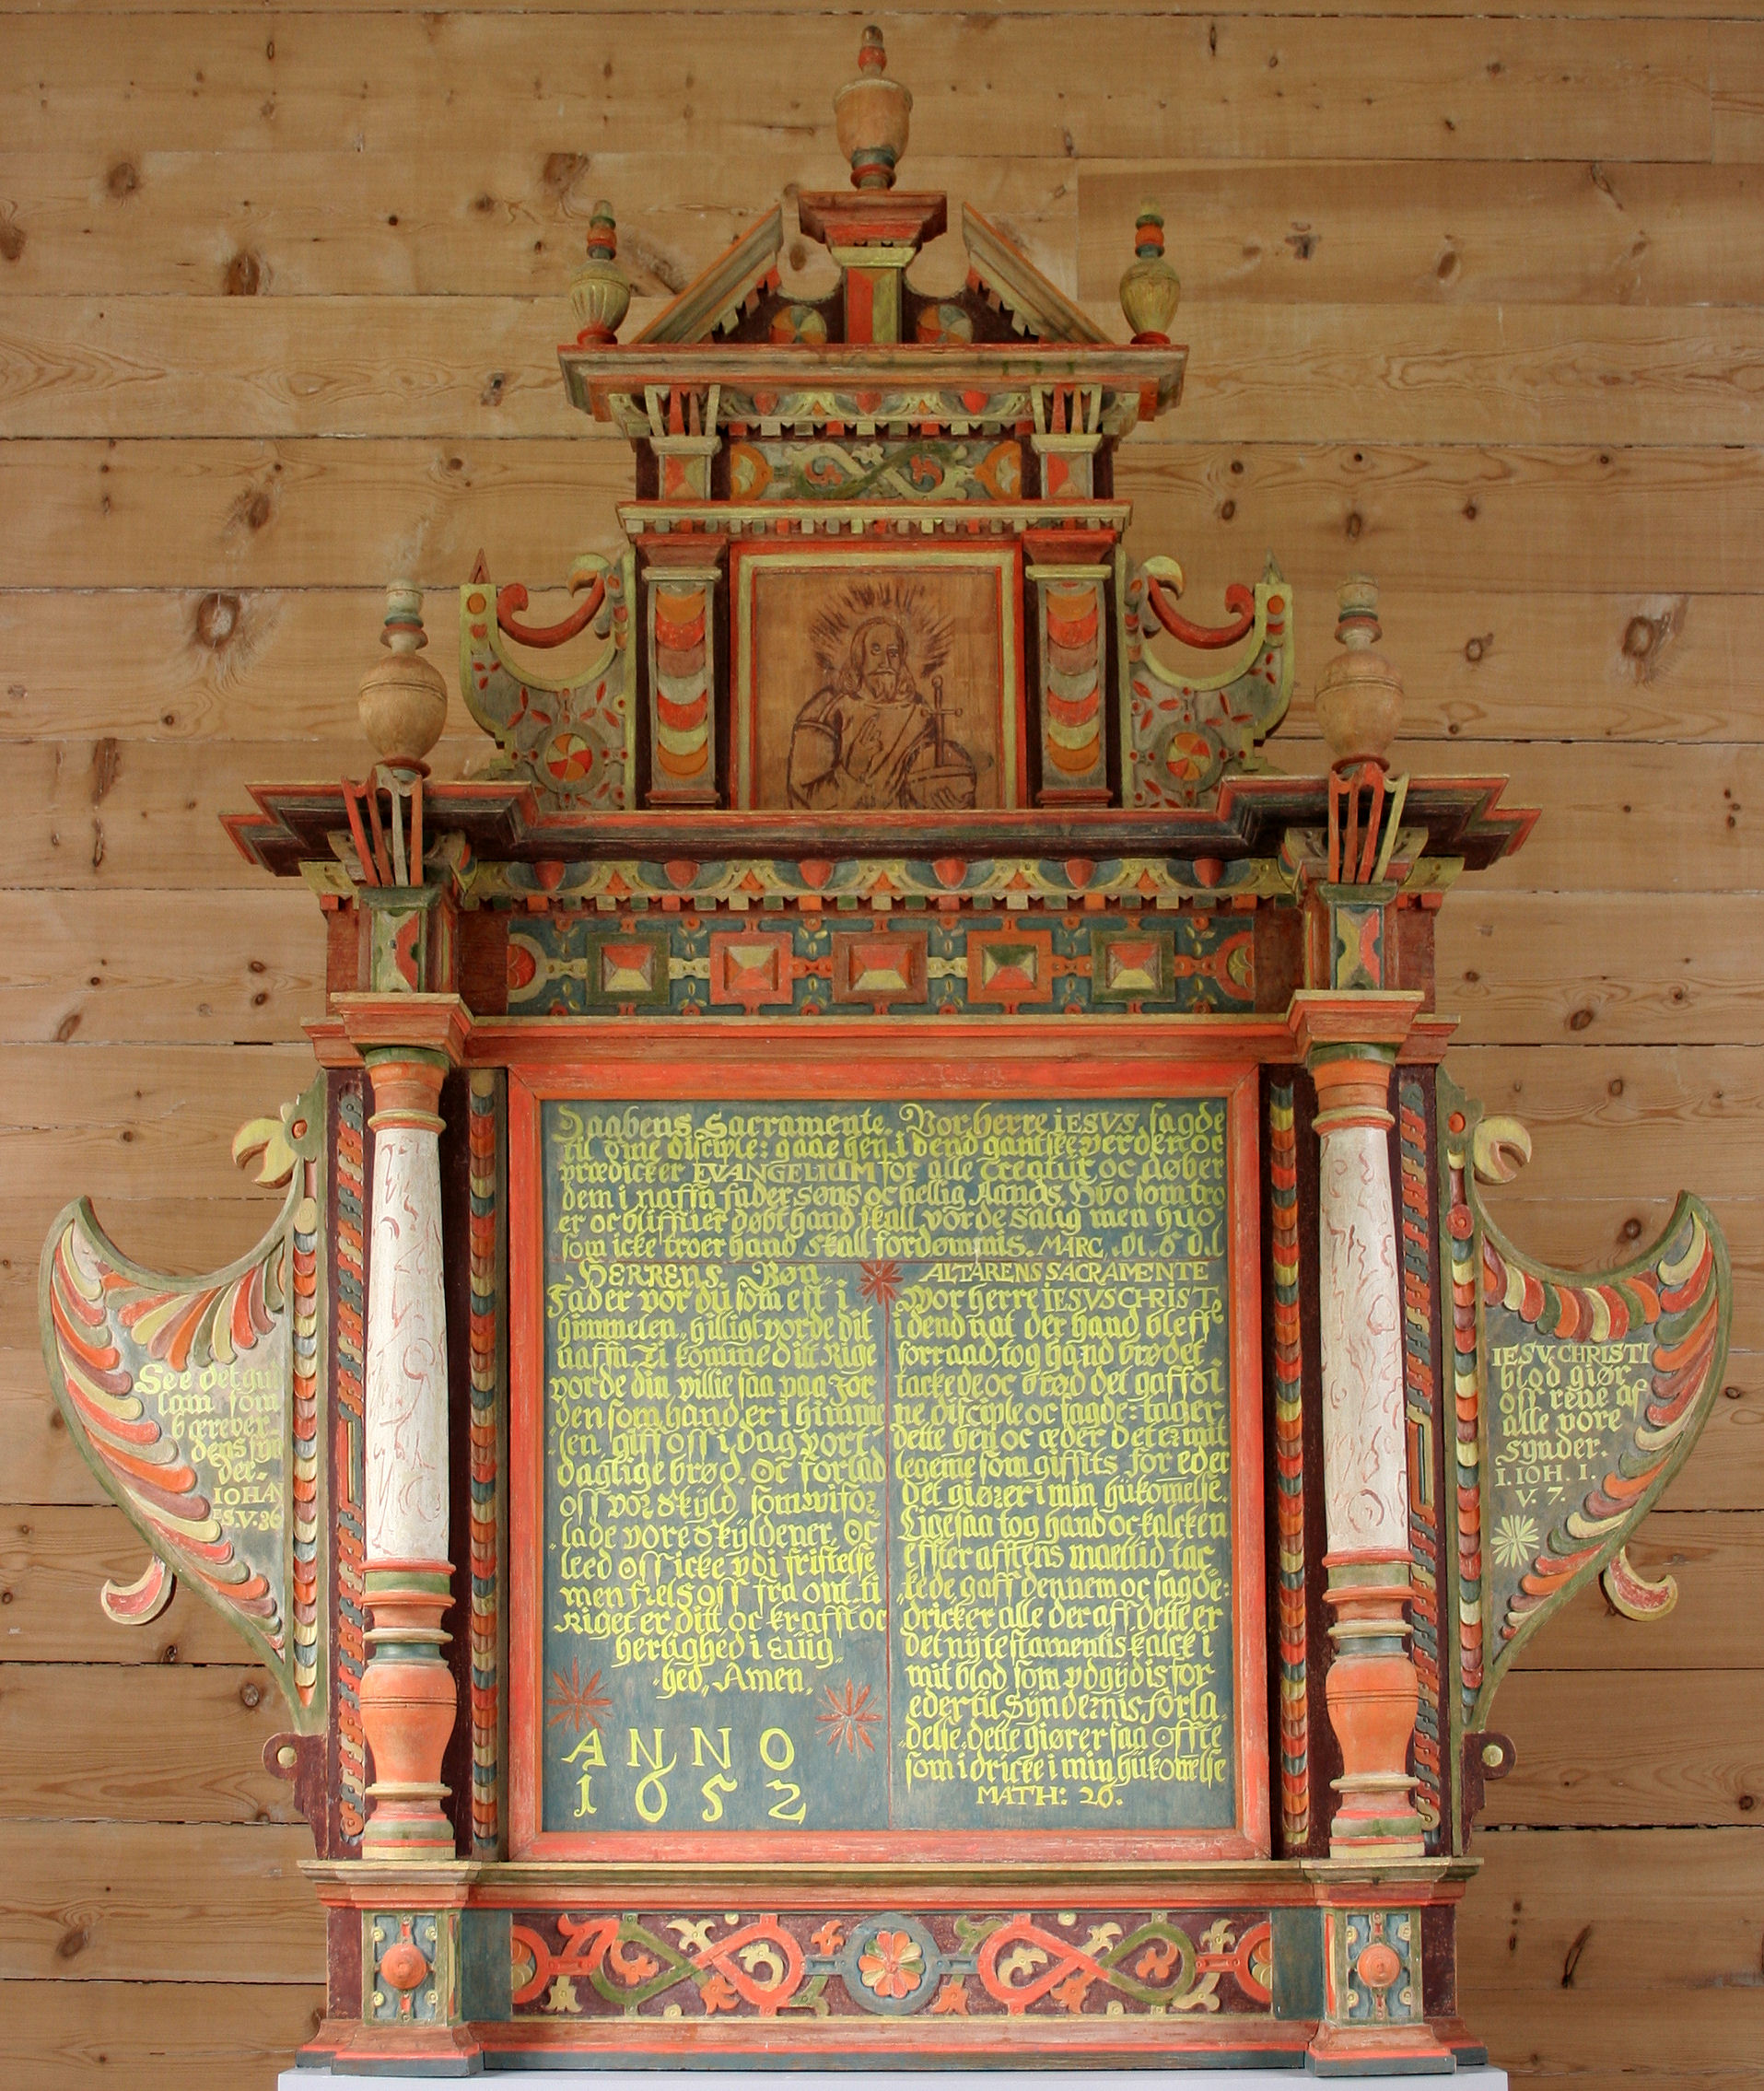 Daabens Sacramente. Vor herre iESVS sagde
til sine disciple: gaae hen i dend gantske verden oc
prædicker EVANGELIUM for alle Creatur oc døber
dem i naffn fader søns oc hellig Aands, Hvo som tro
er oc bliffuer døbt hand skall vorde salig men huo
som icke troer hand skall fordømmis. MARC
HERRENS Bøn
Fader vor du som est i
himmelen, hilligt vorde dit
naffn. Ti komme dit Rige
vorde din villie saa paa Jor
den som hand er i himme
len giff oss i dag vort
daglige brød. oc forlad
oss vor skyld som wi for
lade vore skyldener, Oc
leed oss icke vdi fristelse
men frels oss fra ont. ti
Riget er ditt oc krafft oc
herlighed i Euig
hed, Amen.
ANNO
1652
ALTARENS SACRAMENTE
Vor herre IESVS CHRIST
i dend nat der hand bleff
forraad tog hand brødet
tackede oc brød det gaff si
ne disciple oc sagde: tager
dette hen oc æder det er mit
legeme som giffits for eder
det giører i min hukomelse.
Ligesaa tog hand oc kalcken
effter afftens maeltid tac
kede gaff dennem oc sagde:
dricker alle der aff, dette er
det ny testamentis kalck i
mit blod som vdgydis for
eder til Syndernis forla
delse. dette giører saa offte
som i dricke i min hukomelse
MATH: 26.
See det gu
lam som
bærer ver
dens syn
der.
IOHAN
ES. V. 36
IESV CHRISTI
blod giør
oss rene af
alle vore
synder.
I. IOH. I.
V. 7.